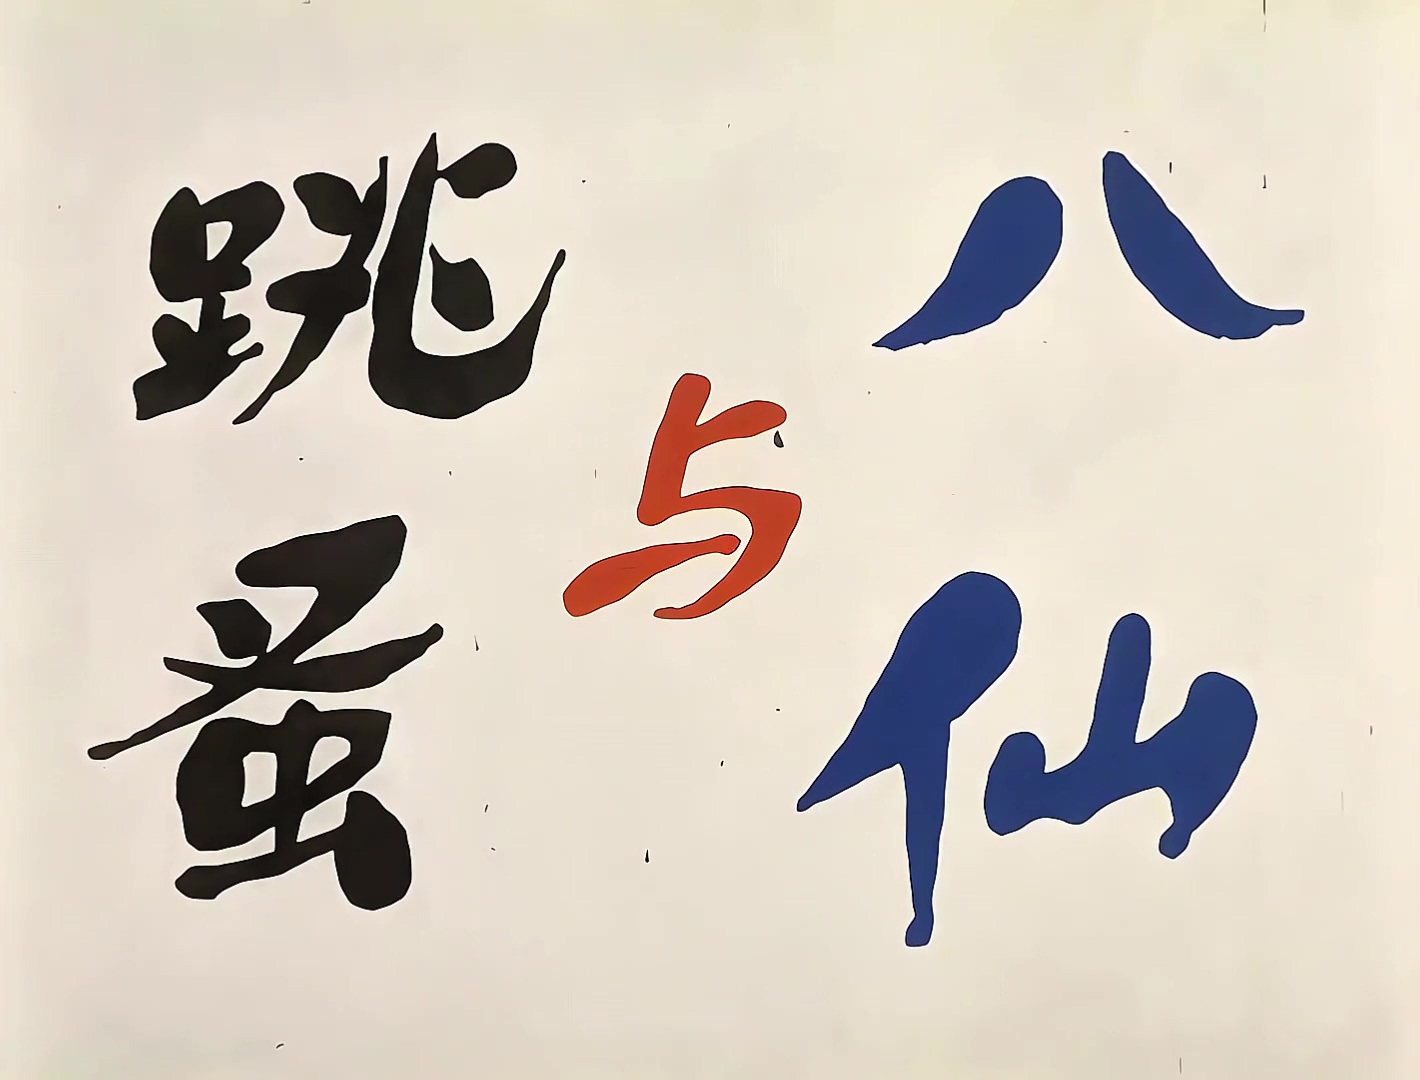 跳蚤
与
八仙